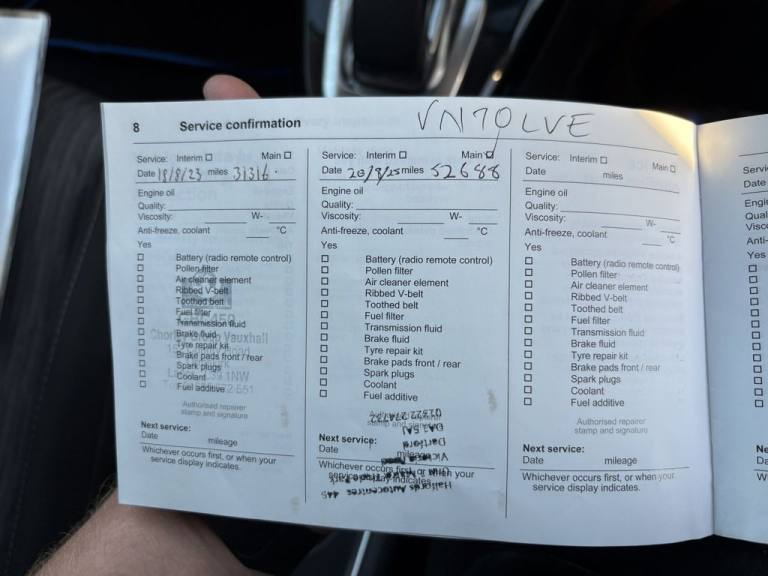 8 Service confirmation
VN70LVE
Service: Interim Main
Date 18/8/23 miles 31316.
Engine oil
Quality:
Viscosity: W-
Anti-freeze, coolant °C
Yes
Battery (radio remote control)
Pollen filter
Air cleaner element
Ribbed V-belt
Toothed belt
Fuel filter
Transmission fluid
Brake fluid
Tyre repair kit
Brake pads front / rear
Spark plugs
Coolant
Fuel additive
Vauxhall
1NW
Authorised repairer
stamp and signature
Next service:
Date mileage
Whichever occurs first, or when your
service display indicates.
Service: Interim Main
Date miles 52688
Engine oil
Quality:
Viscosity: W-
Anti-freeze, coolant °C
Yes
Battery (radio remote control)
Pollen filter
Air cleaner element
Ribbed V-belt
Toothed belt
Fuel filter
Transmission fluid
Brake fluid
Tyre repair kit
Brake pads front / rear
Spark plugs
Coolant
Fuel additive
Authorised repairer
stamp and signature
Next service:
Date mileage
Whichever occurs first, or when your
service display indicates.
Halfords Autocentres 445
Dartford
Service: Interim Main
Date miles
Engine oil
Quality:
Viscosity: W-
Anti-freeze, coolant °C
Yes
Battery (radio remote control)
Pollen filter
Air cleaner element
Ribbed V-belt
Toothed belt
Fuel filter
Transmission fluid
Brake fluid
Tyre repair kit
Brake pads front / rear
Spark plugs
Coolant
Fuel additive
Authorised repairer
stamp and signature
Next service:
Date mileage
Whichever occurs first, or when your
service display indicates.
Date
Yes